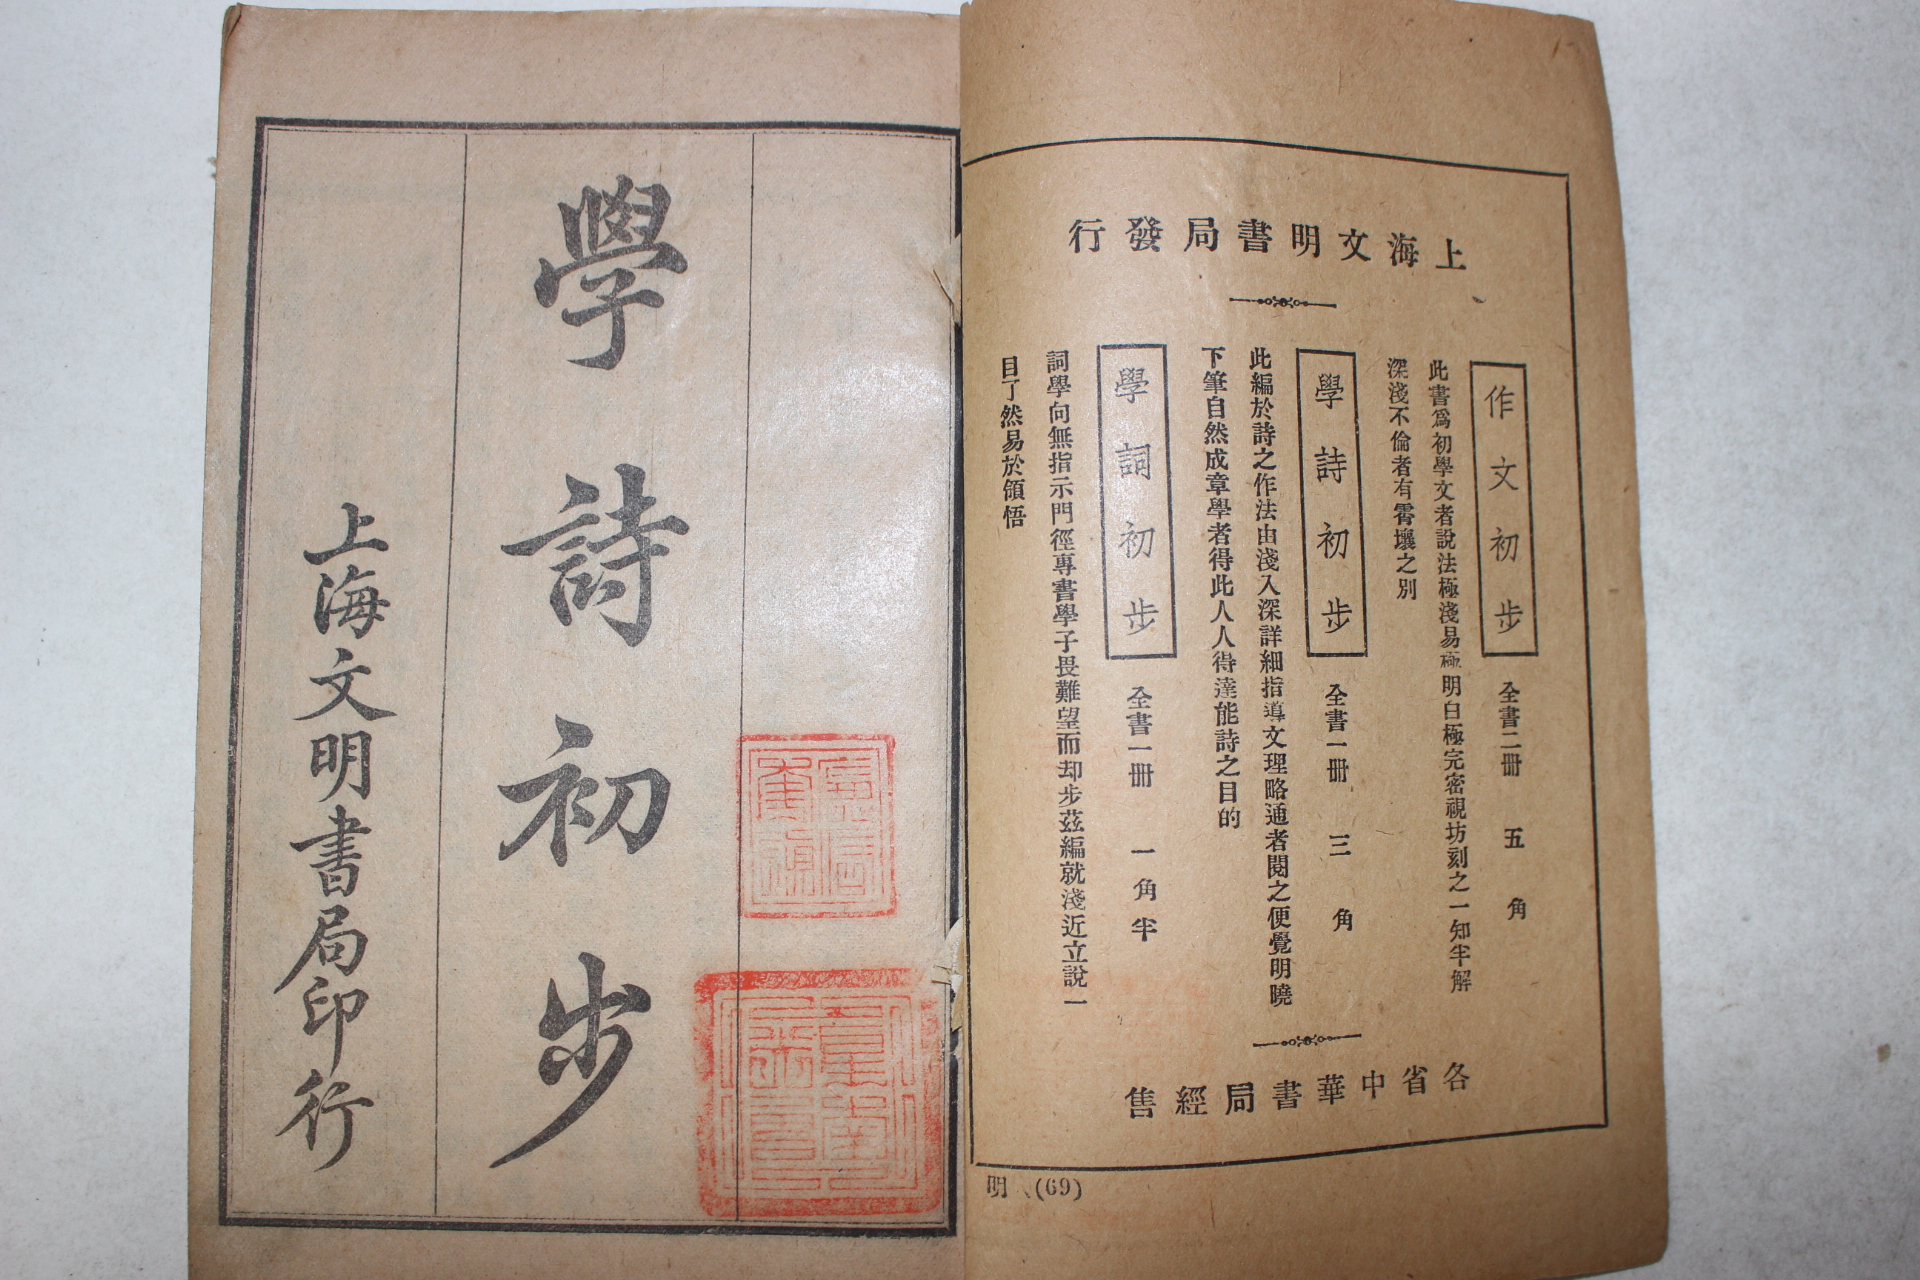 上海文明書局發行
作文初步
全書二冊 五角
此書爲初學文者說法極淺易極明白極完密視坊刻之一知半解
深淺不倫者有霄壤之別
學詩初步
全書一冊 三角
此編於詩之作法由淺入深詳細指導文理略通者閱之便覺明曉
下筆自然成章學者得此人人得達能詩之目的
學詞初步
全書一冊 一角半
詞學向無指示門徑專書學子畏難望而却步茲編就淺近立說一
目了然易於領悟
各省中華書局經售
明 (69)
學詩初步
上海文明書局印行